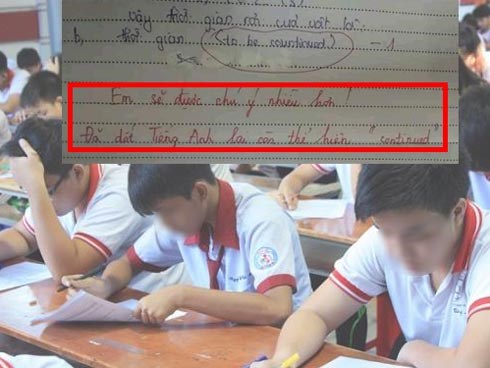 vậy thời gian rơi của vật là:
b, thời gian (to be countinued.) -1
Em sẽ được chú ý nhiều hơn !
Đã dốt Tiếng Anh lại còn thể hiện "continued"